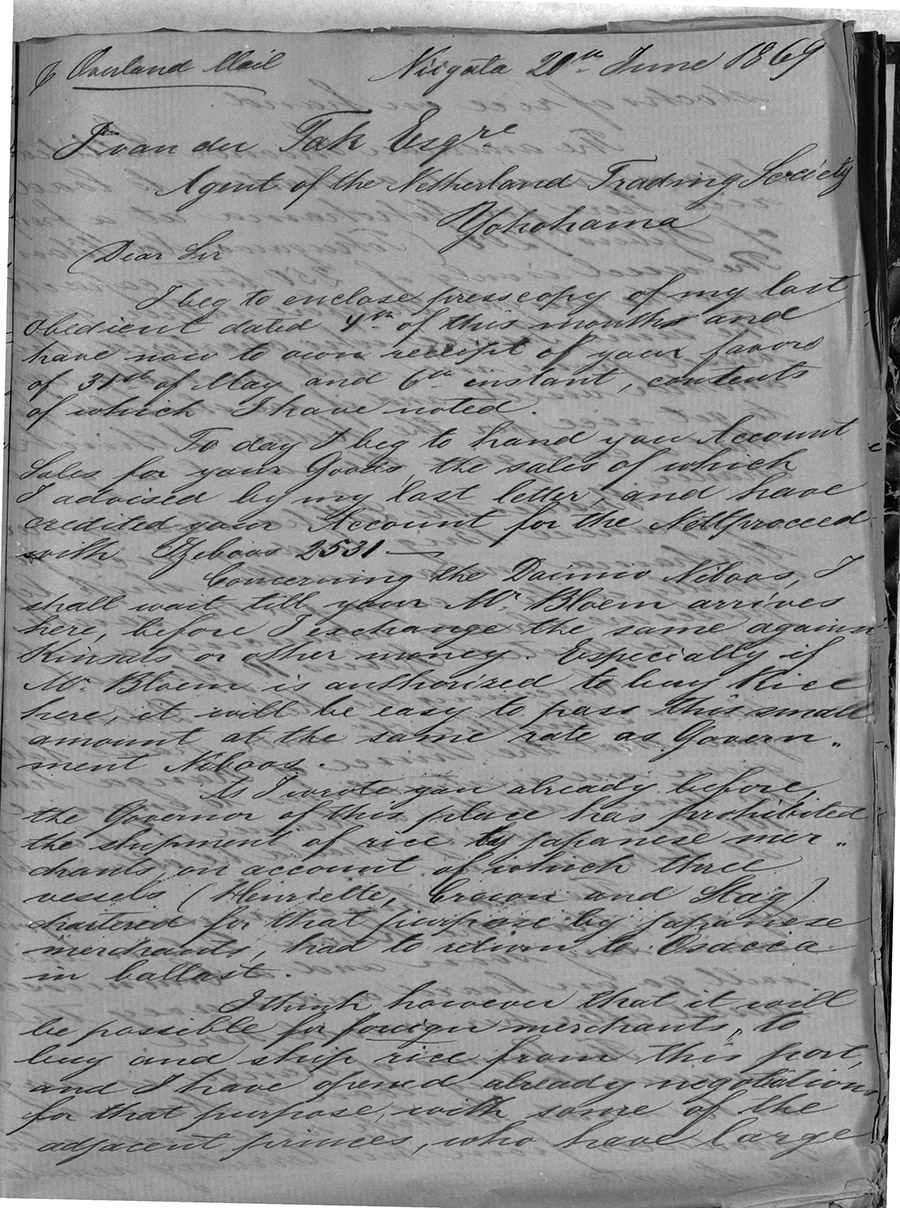 Overland Mail Niigata 20th June 1869
J van der Tak Esqre
Agent of the Netherland Trading Society
Yokohama
Dear Sir
I beg to enclose presscopy of my last
obedient dated 4th of this months and
have now to own receipt of your favors
of 31st of May and 6th instant, contents
of which I have noted.
To day I beg to hand you Account
Sales for your Goods, the sales of which
I advised by my last letter, and have
credited your Account for the Nettproceed
with 2531 —
Concerning the Daimio Niboos, I
shall wait till your Mr. Bloem arrives
here, before I exchange the same against
Kinsats or other money. Especially if
Mr. Bloem is authorized to buy Rice
here, it will be easy to pass this small
amount at the same rate as Govern„
ment Niboos.
As I wrote you already before,
the Governor of this place has prohibited
the shipment of rice by japanese mer„
chants, on account of which three
vessels (Henriette, and Stag)
chartered for that purpose by japanese
merchants, had to return to Osacca
in ballast.
I think however that it will
be possible for foreign merchants, to
buy and ship rice from this port,
and I have opened already negotiations
for that purpose, with some of the
adjacent princes, who have large